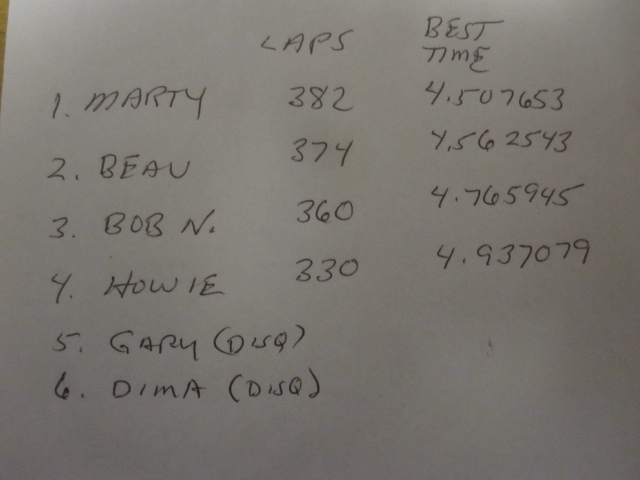 LAPS BEST
TIME
1. MARTY 382 4.507653
2. BEAU 374 4.562543
3. BOB N. 360 4.765945
4. HOWIE 330 4.937079
5. GARY (DISQ)
6. DIMA (DISQ)